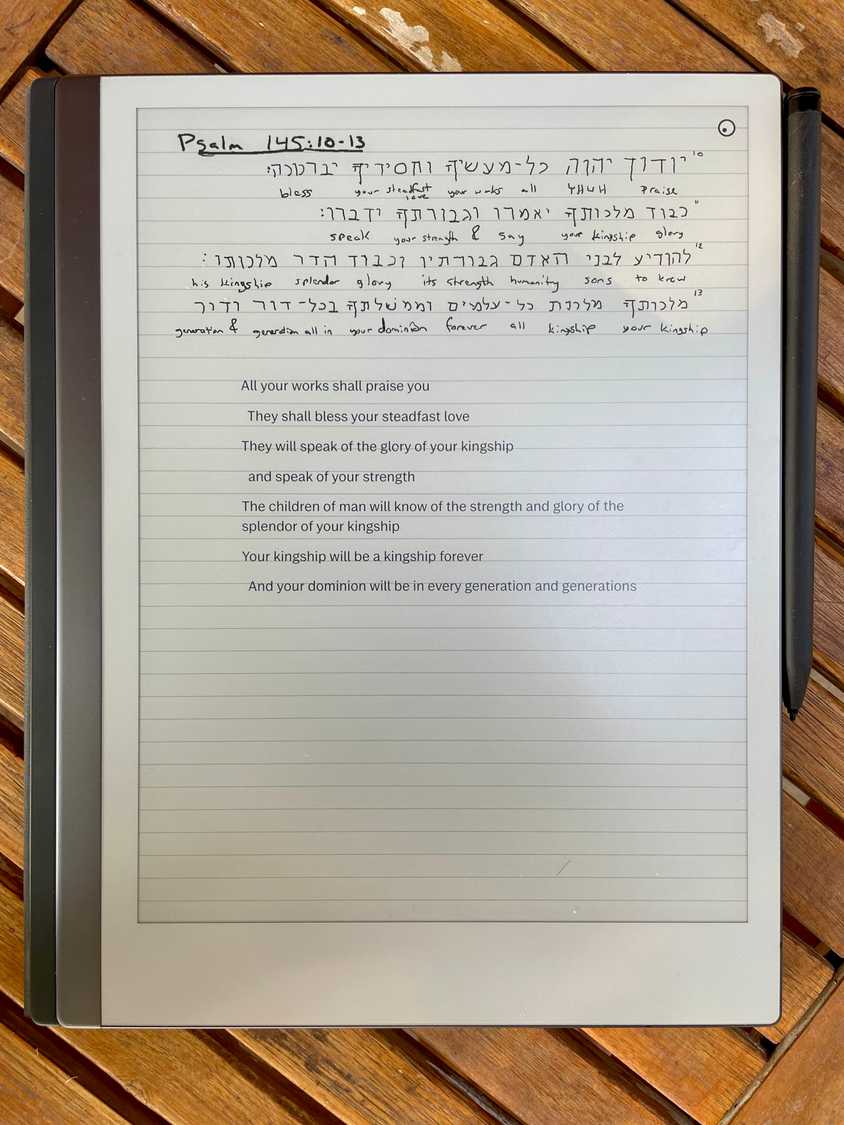 Psalm 145:10-13
¹⁰ יודוך יהוה כל-מעשיך וחסידיך יברכוכה:
bless your steadfast love your works all YHWH praise
¹¹ כבוד מלכותך יאמרו וגבורתך ידברו:
speak your strength & say your kingship glory
¹² להודיע לבני האדם גבורתיו וכבוד הדר מלכותו:
his kingship splendor glory its strength humanity sons to know
¹³ מלכותך מלכות כל-עלמים וממשלתך בכל-דור ודור
generation & generation all in your dominion forever all kingship your kingship
All your works shall praise you
They shall bless your steadfast love
They will speak of the glory of your kingship
and speak of your strength
The children of man will know of the strength and glory of the
splendor of your kingship
Your kingship will be a kingship forever
And your dominion will be in every generation and generations